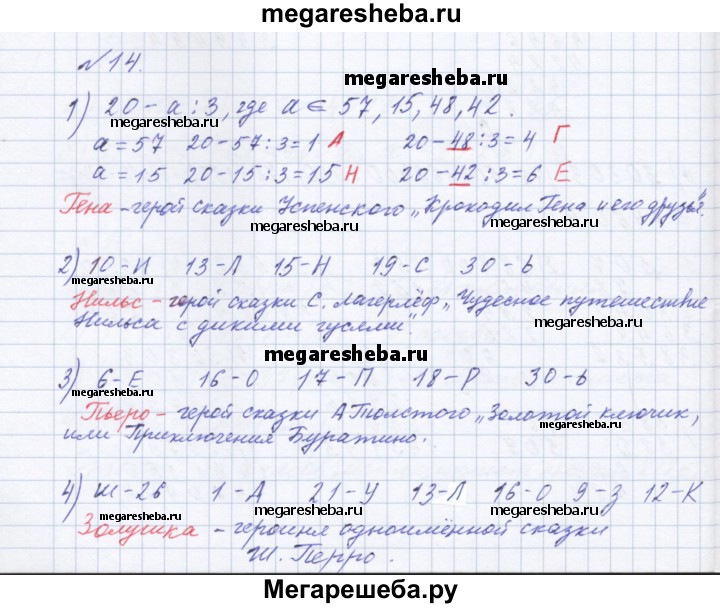 megaresheba.ru
№14.
megaresheba.ru
1) 20 - a : 3, где a ∈ 57, 15, 48, 42.
megaresheba.ru
a = 57 20 - 57 : 3 = 1 А 20 - 48 : 3 = 4 Г
megaresheba.ru
a = 15 20 - 15 : 3 = 15 Н 20 - 42 : 3 = 6 Е
megaresheba.ru
Гена - герой сказки Успенского „Крокодил Гена и его друзья".
megaresheba.ru
2) 10 - И 13 - Л 15 - Н 19 - С 30 - Ь
megaresheba.ru
Нильс - герой сказки С. Лагерлёф „Чудесное путешествие
Нильса с дикими гусями".
megaresheba.ru
megaresheba.ru
3) 6 - Е 16 - О 17 - П 18 - Р 30 - Ь
megaresheba.ru
Пьеро - герой сказки А Толстого „Золотой ключик,
или Приключения Буратино.
megaresheba.ru
4) Ш - 26 1 - А 21 - У 13 - Л 16 - О 9 - З 12 - К
megaresheba.ru
megaresheba.ru
Золушка - героиня одноимённой сказки
Ш. Перро.
Мегарешеба.ру